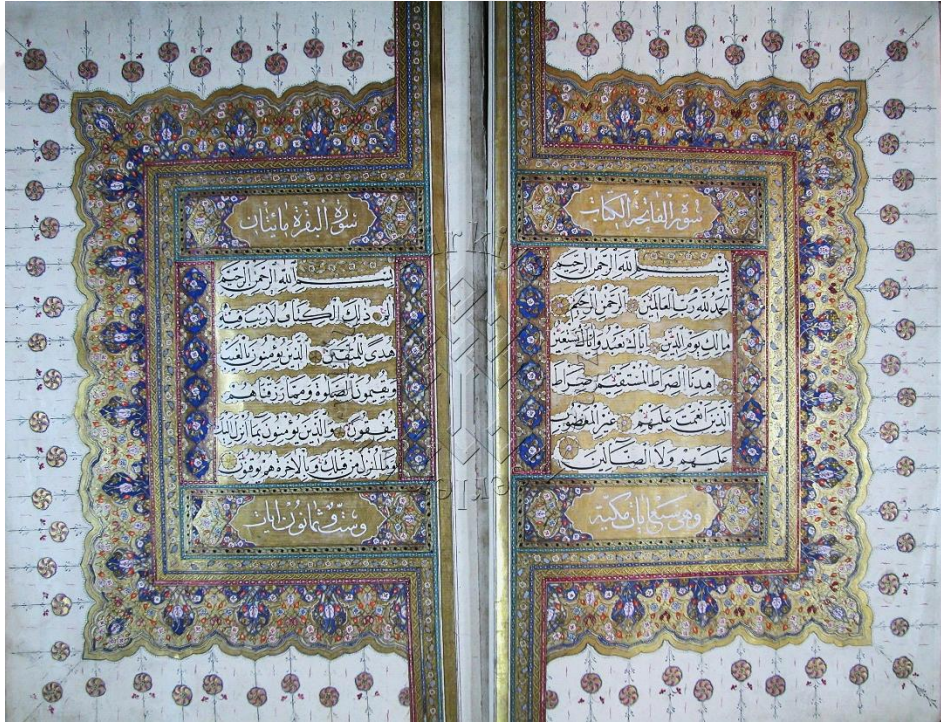 سورة الفاتحة الكتاب
بسم الله الرحمن الرحيم
الحمد لله رب العالمين الرحمن الرحيم
مالك يوم الدين اياك نعبد واياك نستعين
اهدنا الصراط المستقيم صراط
الذين انعمت عليهم غير المغضوب
عليهم ولا الضالين
وهي سبع ايات مكية
سورة البقرة مائتان
بسم الله الرحمن الرحيم
الم ذلك الكتاب لا ريب فيه
هدى للمتقين الذين يؤمنون بالغيب
ويقيمون الصلوة ومما رزقناهم
ينفقون والذين يؤمنون بما انزل اليك
وما انزل من قبلك وبالاخرة هم يوقنون
وست وثمانون ايات